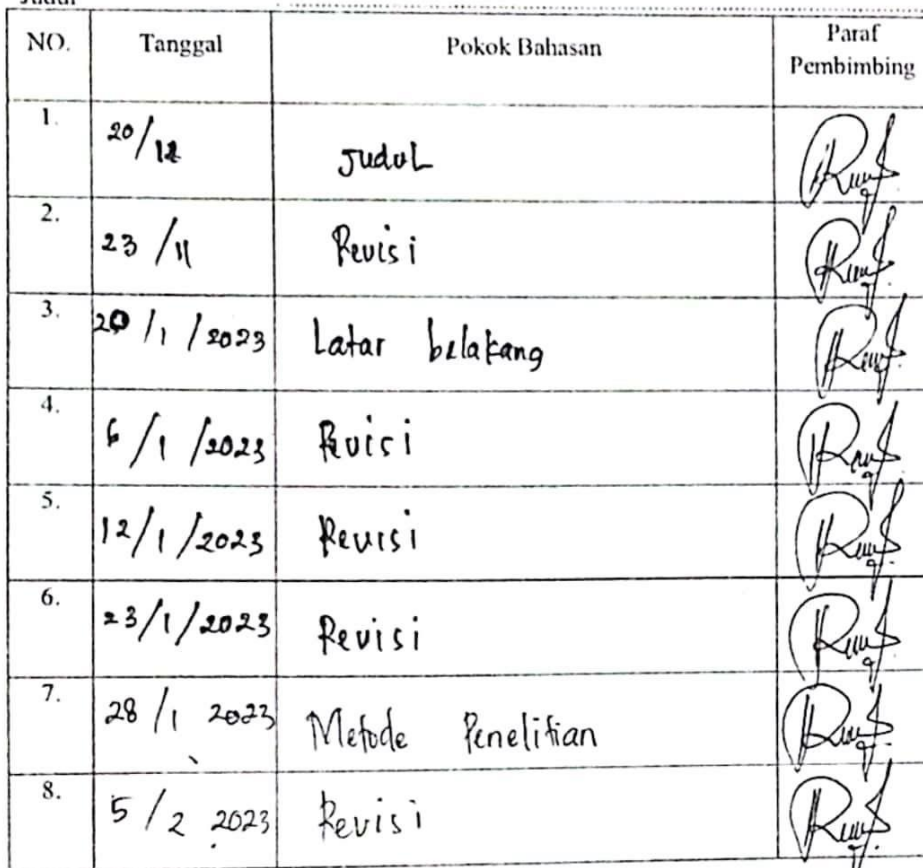 Judul
NO. Tanggal Pokok Bahasan Paraf Pembimbing
1. 20/12 Judul
2. 23/11 Revisi
3. 20/1/2023 Latar belakang
4. 6/1/2023 Revisi
5. 12/1/2023 Revisi
6. 23/1/2023 Revisi
7. 28/1 2023 Metode Penelitian
8. 5/2 2023 Revisi